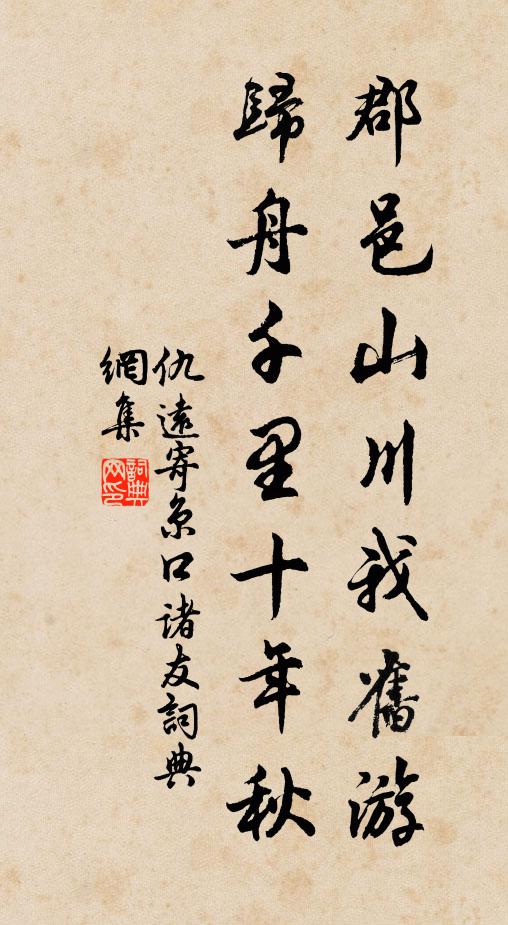 郡邑山川我舊游
歸舟千里十年秋
仇遠寄京口諸友詞典
網集
詞典
网印